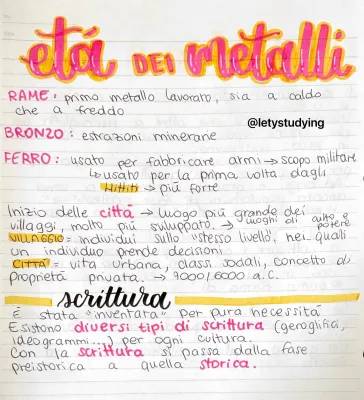 etá DEI metalli
RAME: primo metallo lavorato, sia a caldo
che a freddo
@letystudying
BRONZO: estrazioni minerarie
FERRO: usato per fabbricare armi → scopo militare
↳ usato per la prima volta dagli
Hittiti → più forte
Inizio delle città → luogo più grande dei
villaggi, molto più sviluppato. → luoghi di culto e potere
VILLAGGIO = individui sullo "stesso livello", nei quali
un individuo prende decisioni
CITTÀ = vita urbana, classi sociali, concetto di
proprietà privata. → 9000/6000 a.C.
scrittura
È stata "inventata" per pura necessità
Esistono diversi tipi di scrittura (geroglifici,
ideogrammi...) per ogni cultura.
Con la scrittura si passa dalla fase
preistorica a quella storica.